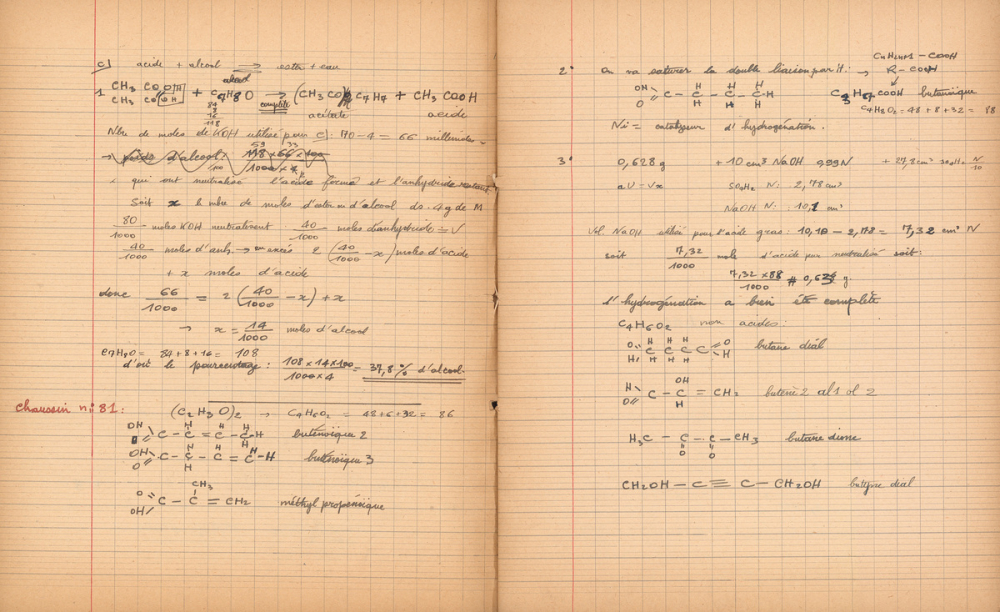 c) acide + alcool → ester + eau
alcool
1 CH3 CO OH + C7H8O → (CH3 CO) C7H7 + CH3 COOH
CH3 CO OH
complète
acétate acide
84
8
16
108
Nbre de moles de KOH utilisé pour c): 70-4 = 66 millimoles
→ d'alcool:
1000 × 4
qui ont neutralisé l'acide formé et l'anhydride restant
Soit x le nbre de moles d'ester ou d'alcool ds 4g de M
80/1000 moles KOH neutralisent 40/1000 moles d'anhydride
40/1000 moles d'anh. → en excès 2 (40/1000 - x) moles d'acide
+ x moles d'acide
donc 66/1000 = 2 (40/1000 - x) + x
→ x = 14/1000 moles d'alcool
C7H8O = 84+8+16 = 108
d'où le pourcentage: 108×14×100/1000×4 = 37,8% d'alcool.
Chaussin n: 81: (C2H3O)2 → C4H6O2 = 48+6+32 = 86
OH H H H
O C - C = C - C-H buténoïque 2
H
OH H H H
O C - C - C = C-H buténoïque 3
H
CH3
O C - C = CH2 méthyl propénoïque
OH
CnH2n+1 - COOH
2° On va saturer la double liaison par H: → R-COOH
OH H H H
O C - C - C - C-H C3H7COOH butanoïque
H H H
C4H8O2 = 48+8+32 = 88
Ni = catalyseur d'hydrogénation.
3° 0,628g + 10 cm3 NaOH 0,99N + 27,8 cm3 SO4H2 N/10
aV = Vx SO4H2 N: 2,78 cm3
NaOH N: 10,1 cm3
Vol NaOH utilisé pour l'acide gras: 10,10 - 2,78 = 7,32 cm3 N
soit 7,32/1000 mole d'acide pur neutralisé soit:
7,32 × 88/1000 # 0,63 g.
L'hydrogénation a bien été complète
C4H6O2 non acides:
H H H
O C C C C O butane dial
H H H H H
OH
H C - C = CH2 butène 2 al 1 ol 2
O H
H3C - C - C - CH3 butane dione
O O
CH2OH - C ≡ C - CH2OH butyne diol